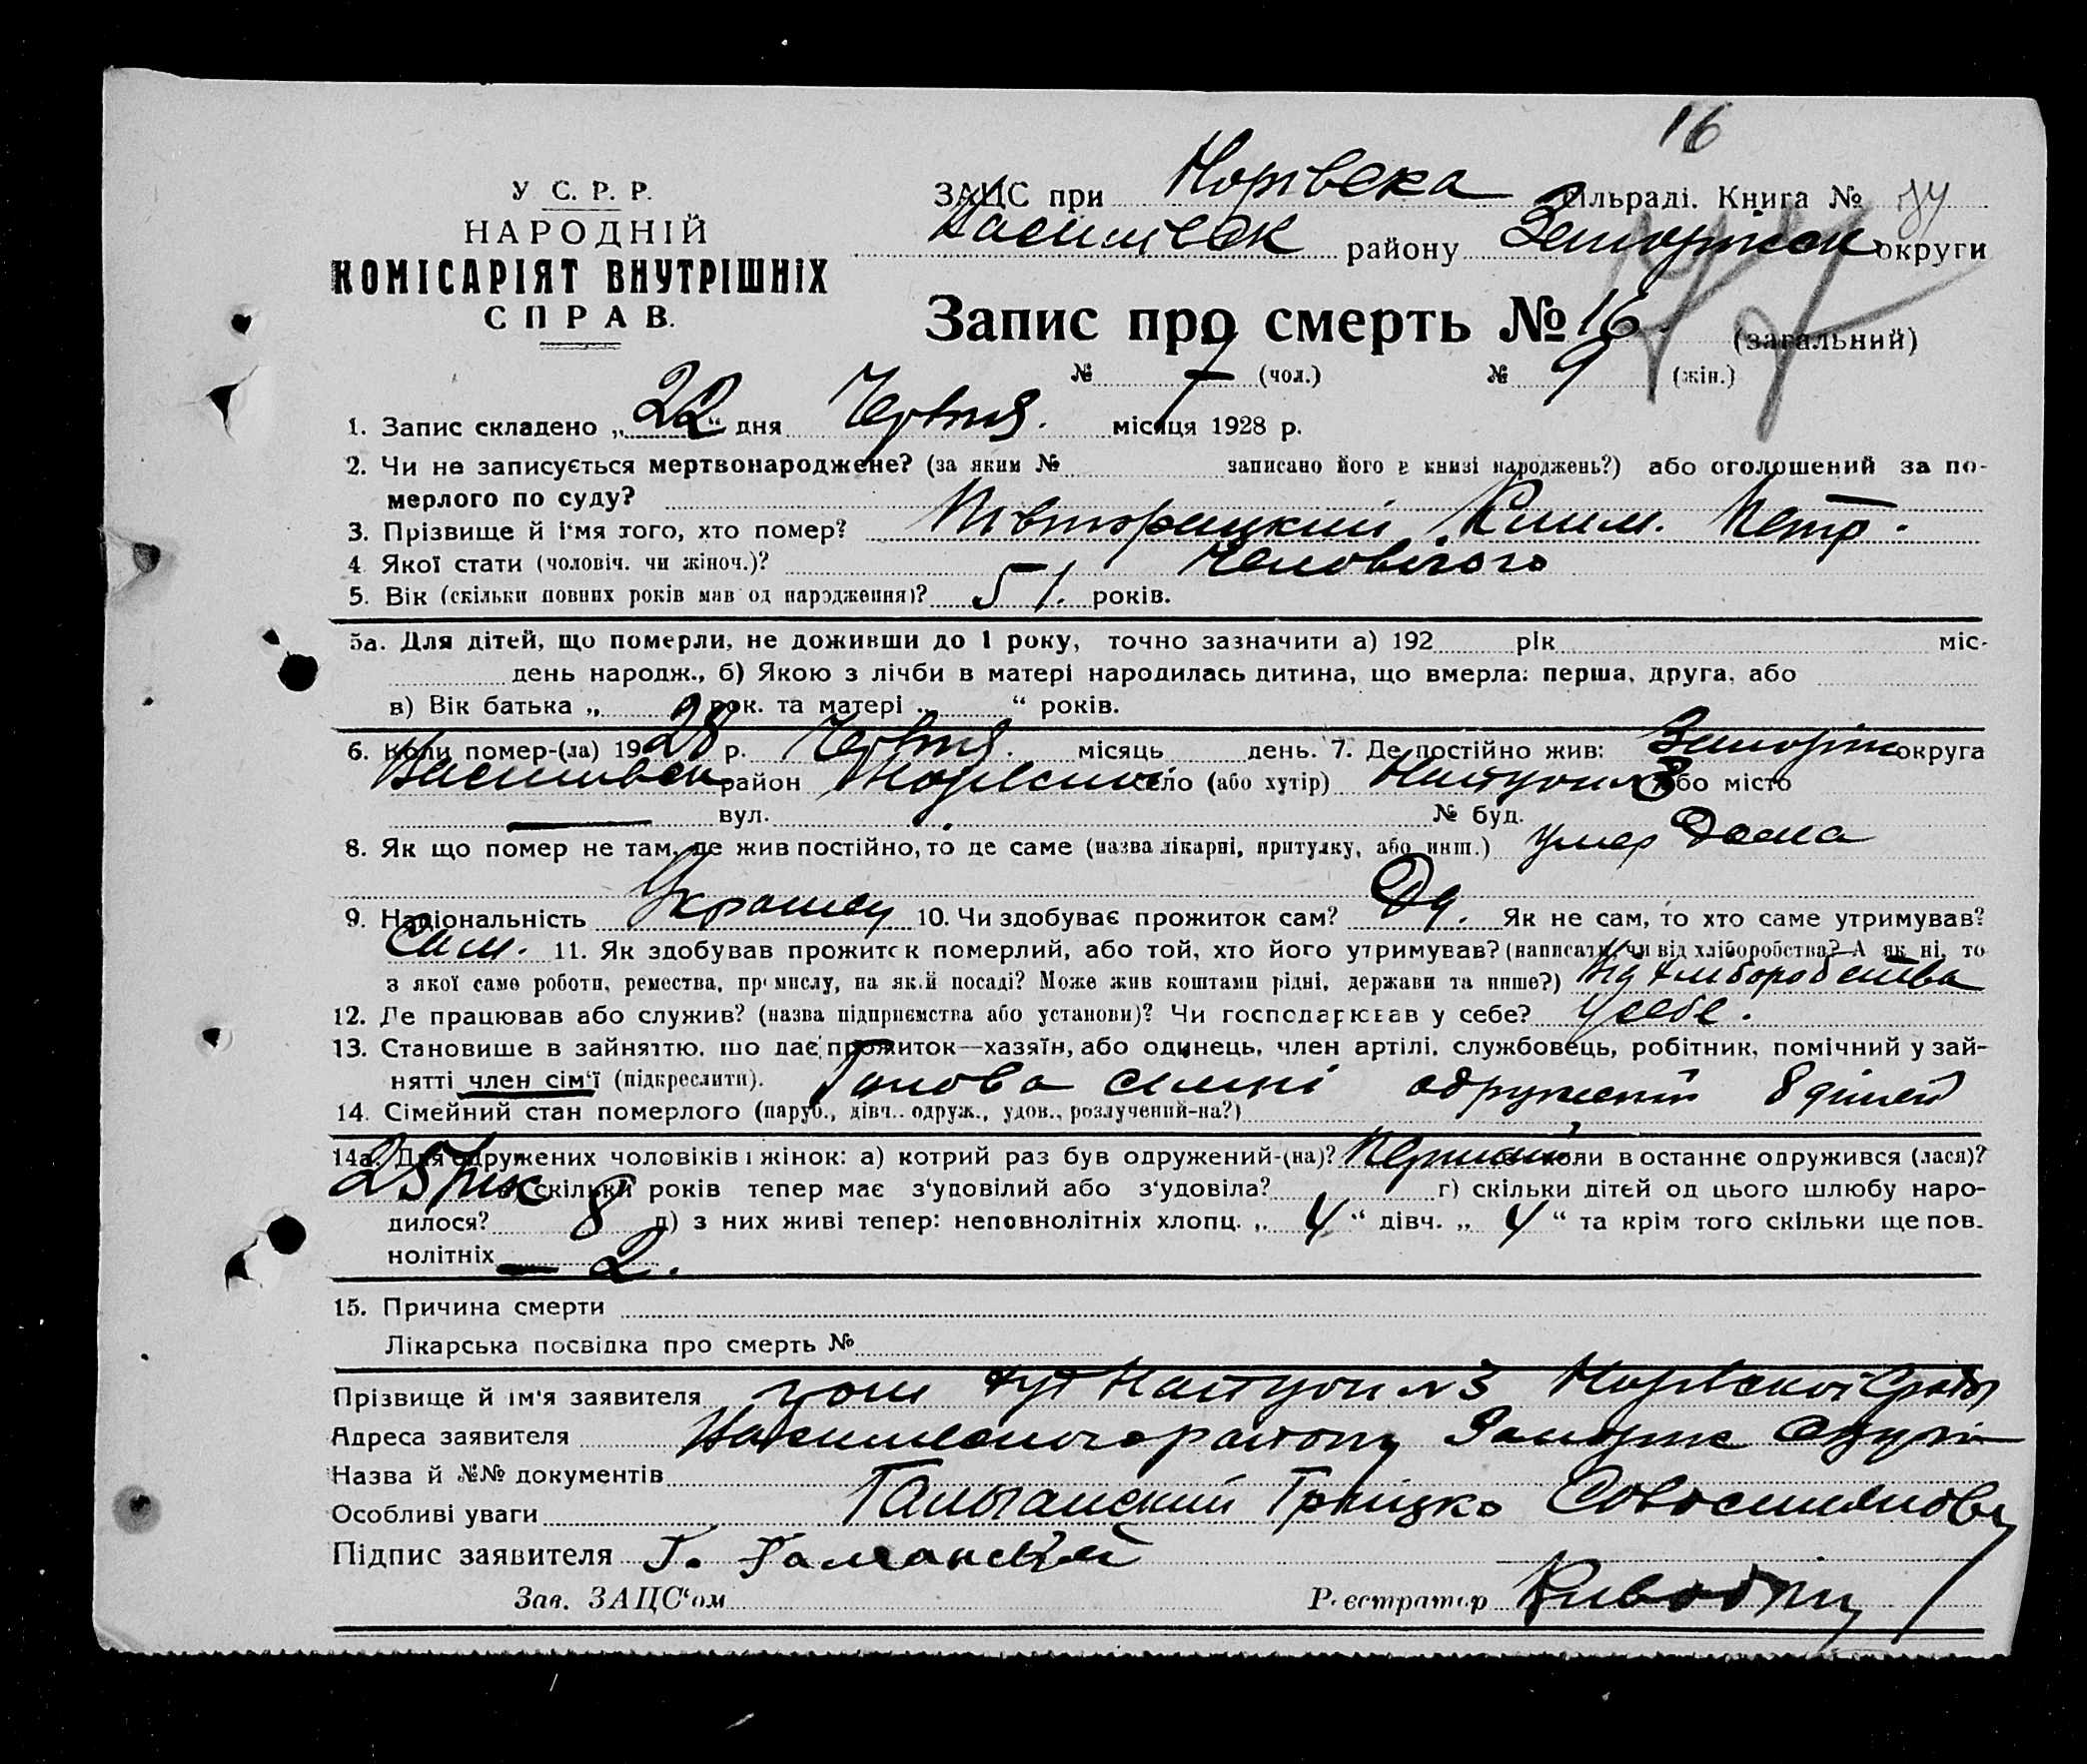 16
У С. Р. Р.
НАРОДНІЙ
КОМІСАРІЯТ ВНУТРІШНІХ
СПРАВ.
ЗАЦС при сільраді. Книга №
району округи
Запис про смерть № 16 (загальний)
№ 7 (чол.) № 9 (жін.)
1. Запис складено „22“ дня Червня. місяця 1928 р.
2. Чи не записується мертвонароджене? (за яким № записано його в книзі народжень?) або оголошений за по-
мерлого по суду?
3. Прізвище й ім‘я того, хто помер? Півторацкий Клим. Петр.
4 Якої стати (чоловіч. чи жіноч.)? Человічого
5. Вік (скільки повних років мав од народження)? 51. років.
5а. Для дітей, що померли, не доживши до 1 року, точно зазначити а) 192 рік міс-
день народж., б) Якою з лічби в матері народилась дитина, що вмерла: перша, друга, або
в) Вік батька „ рок. та матері „ “ років.
6. Коли помер-(ла) 1928 р. Червня. місяць день. 7. Де постійно жив: Запоріж округа
Василівск район село (або хутір) або місто
вул. № буд.
8. Як що помер не там, де жив постійно, то де саме (назва лікарні, притулку, або инш.) умер Дома
9. Національність 10. Чи здобуває прожиток сам? Да. Як не сам, то хто саме утримував?
Сам. 11. Як здобував прожиток померлий, або той, хто його утримував? (написати, чи від хліборобства? А як ні, то
з якої само роботи, ремества, промислу, на якій посаді? Може жив коштами рідні, держави та инше?) Від хліборобства
12. Де працював або служив? (назва підприємства або установи)? Чи господарював у себе? У себе.
13. Становище в зайняттю, що дає прожиток—хазяїн, або одинець, член артілі, службовець, робітник, помічний у зай-
нятті член сім‘ї (підкреслити). Голова сімні одружений 8 дітей
14. Сімейний стан померлого (паруб., дівч.. одруж., удов., розлучений-на?)
14а. Для одружених чоловіків і жінок: а) котрий раз був одружений-(на)? Перший коли в останнє одружився (лася)?
25 рік скільки років тепер має з‘удовілий або з‘удовіла? г) скільки дітей од цього шлюбу наро-
дилося? 8 д) з них живі тепер: неповнолітніх хлопц. „ 4 “ дівч. „ 4 “ та крім того скільки ще пов-
нолітніх — 2.
15. Причина смерти
Лікарська посвідка про смерть №
Прізвище й ім'я заявителя хут №3
Адреса заявителя району
Назва й №№ документів
Особливі уваги Грицко
Підпис заявителя Г. Гаманский
Зав. ЗАЦС‘ом Реєстратор